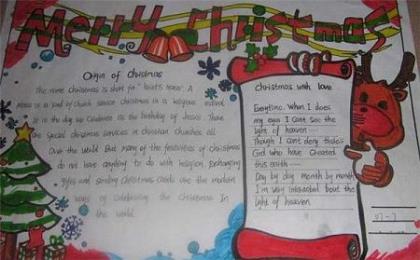 Merry Christmas
Origin of Christmas
The name Christmas is short for "Christ's Mass". A
Mass is a kind of Church service Christmas is a religious
It is the day we celebrate as the birthday of Jesus. There
are special christmas services in christian churches all
Over the world But many of the festivities of christmas
do not have anything to do with religion. Exchanging
gifts and sending Christmas Cards are the modern
ways of celebrating the Christmas In
the world.
Christmas with love
Everytime When I does
my eyes I can't see the
light of heaven
Though I can't deny there's
God who have created
this earth
Day by day month by month
I'm very interested 'bout the
light of heaven